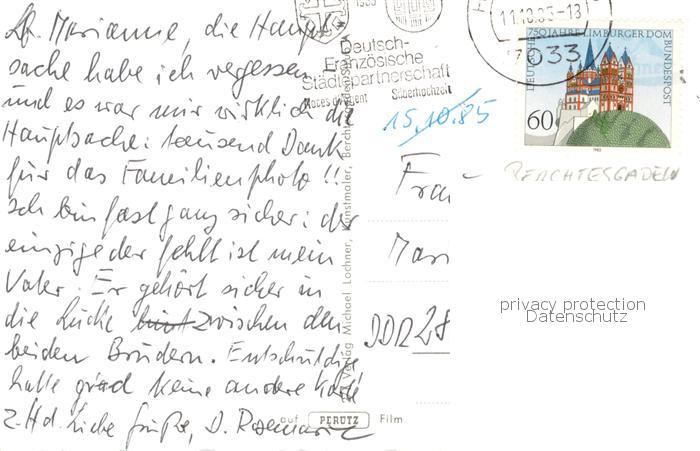 Lb. Marianne, die Haupt-
sache habe ich vergessen
und es war mir wirklich die
Hauptsache: tausend Dank
für das Familienphoto !!
Ich bin fast ganz sicher: der
einzige der fehlt ist mein
Vater. Er gehört sicher in
die Lücke zwischen den
beiden Brüdern. Entschuldige
hatte grad keine andere Karte
z.Hd. Liebe Grüße, D. Rosemarie
Deutsch-
Französische
Städtepartnerschaft
Silberhochzeit
11.10.85-13
7033
750 JAHRE LIMBURGER DOM
DEUTSCHE BUNDESPOST
60
15.10.85
BERCHTESGADEN
Frau
DDR 28
Verlag Michael Lochner, Kunstmaler, Berchtesgaden
auf PERUTZ Film
privacy protection
Datenschutz